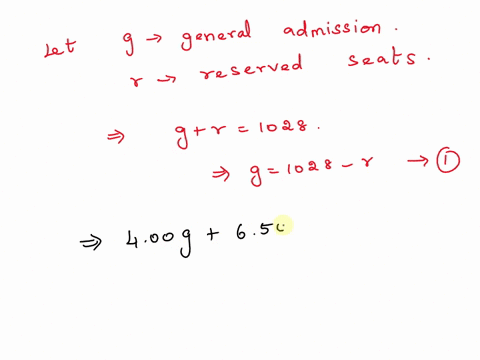 Let g → general admission.
r → reserved seats.
⇒ g + r = 1028.
⇒ g = 1028 - r → ①
⇒ 4.00g + 6.5